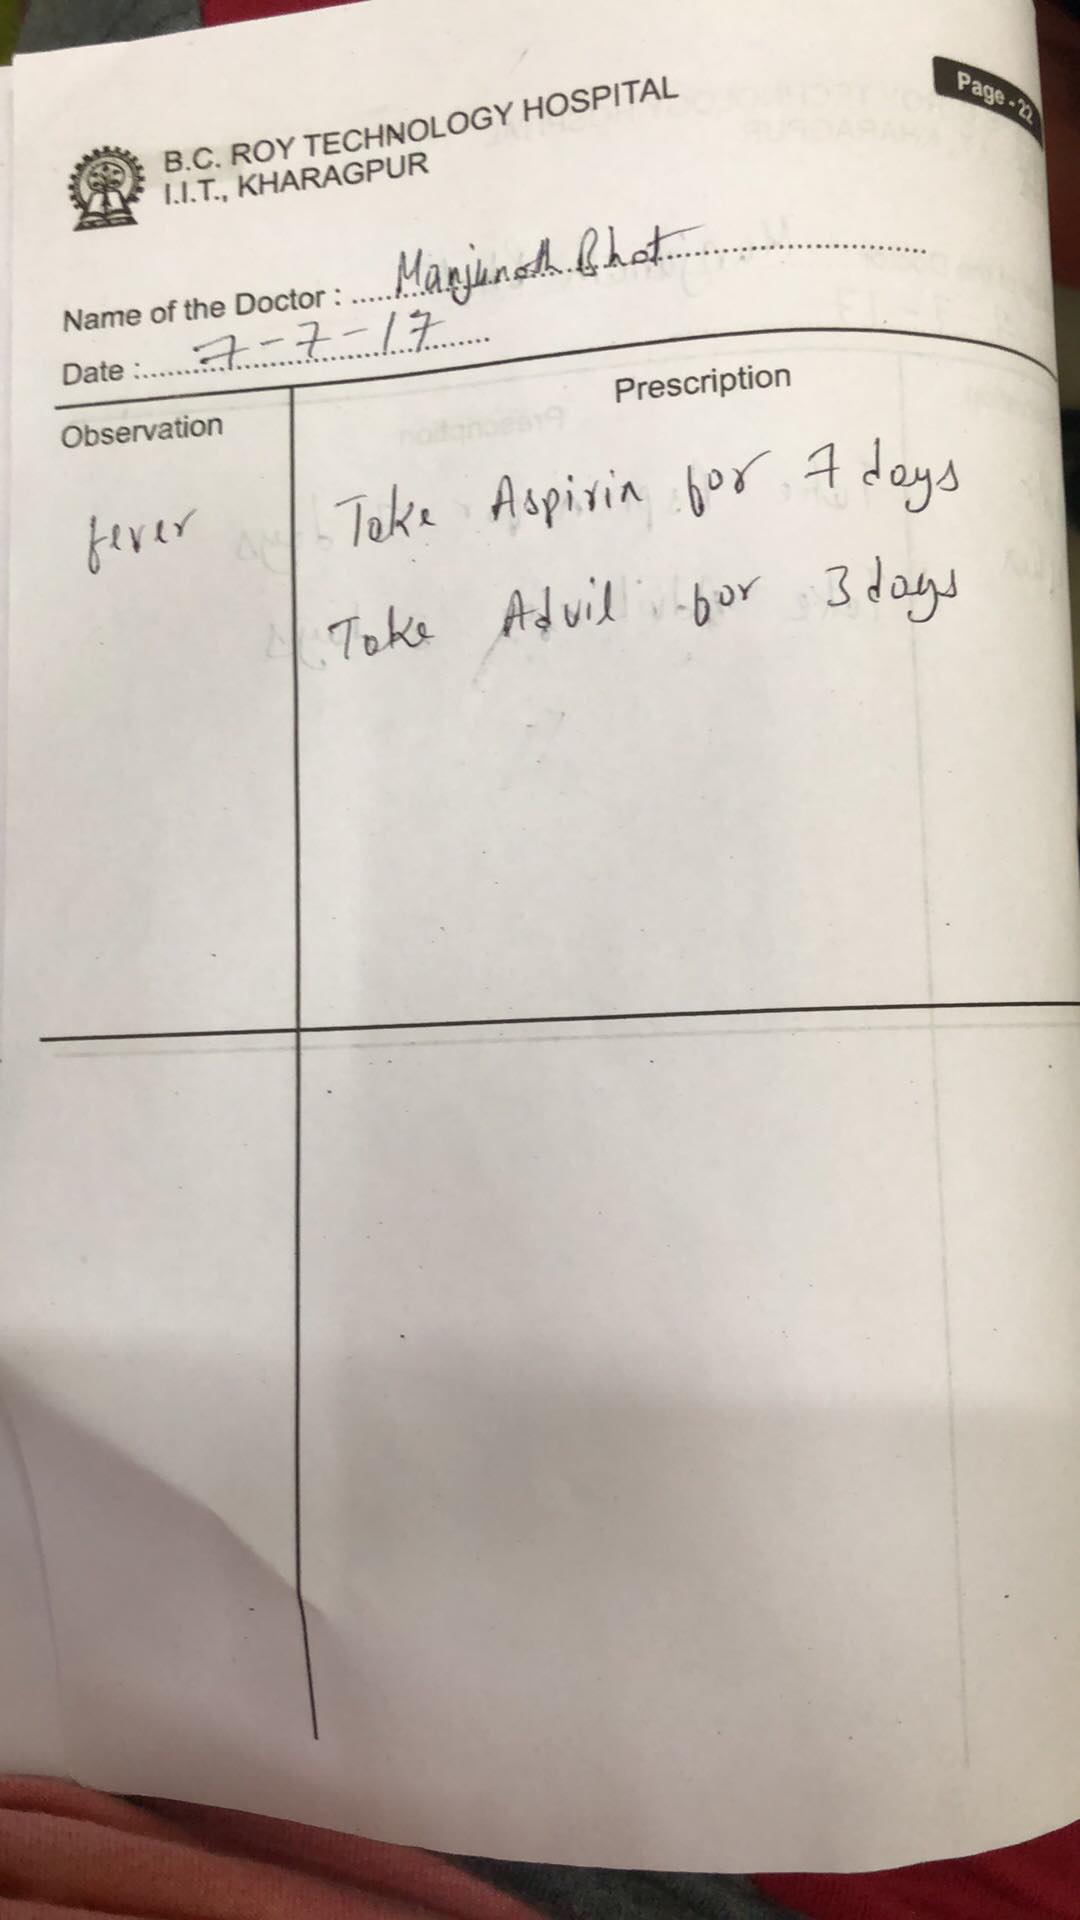 Page - 22
B.C. ROY TECHNOLOGY HOSPITAL
I.I.T., KHARAGPUR
Name of the Doctor : Manjunath Bhat
Date : 7-7-17
Observation Prescription
fever Take Aspirin for 7 days
Take Advil for 3 days